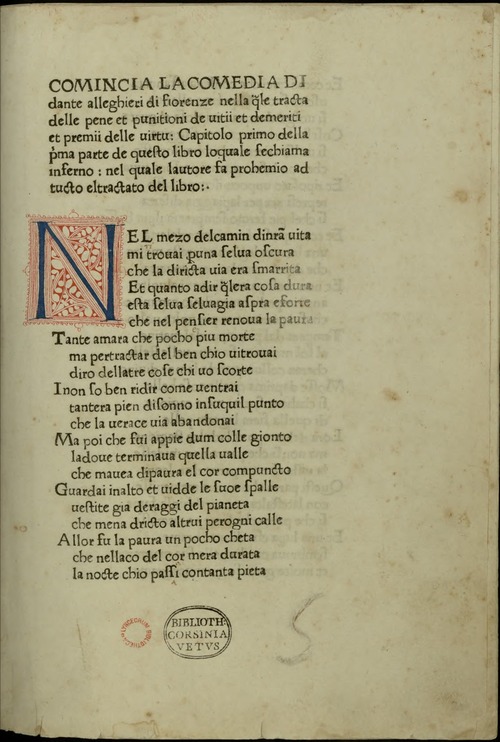 COMINCIA LA COMEDIA DI
dante alleghieri di fiorenze nella q̃le tracta
delle pene et punitioni de uitii et demeriti
et premii delle uirtu: Capitolo primo della
p̃ma parte de questo libro loquale sechiama
inferno : nel quale lautore fa prohemio ad
tucto eltractato del libro:·
NEL mezo delcamin dinrã uita
mi trouai ꝑuna selua oscura
che la diricta uia era smarrita
Et quanto adir q̃lera cosa dura
esta selua seluagia aspra eforte
che nel pensier renoua la paura
Tante amara che pocho piu morte
ma pertractar del ben chio uitrouai
diro dellatre cose chi uo scorte
Inon so ben ridir come uentrai
tantera pien disonno insuquil punto
che la uerace uia abandonai
Ma poi che fui appie dum colle gionto
ladoue terminaua quella ualle
che mauea dipaura el cor compuncto
Guardai inalto et uidde le suoe spalle
uestite gia deraggi del pianeta
che mena dricto altrui perogni calle
Allor fu la paura un pocho cheta
che nellaco del cor mera durata
la nocte chio passi contanta pieta
BIBLIOTH.
CORSINIA
VETVS
5